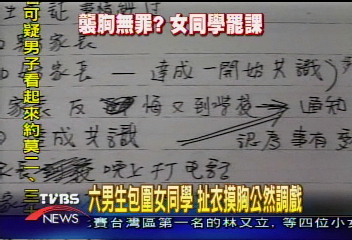 襲胸無罪? 女同學罷課
可疑男子看起來約莫二、三
家長
家長 — 達成一開始共識)
家長 反悔又到學校 通知
達成共識 認為事有
晚上打電話
六男生包圍女同學 扯衣摸胸公然調戲
TVBS
NEWS
賽台灣區第一名的林又立,等四位小女